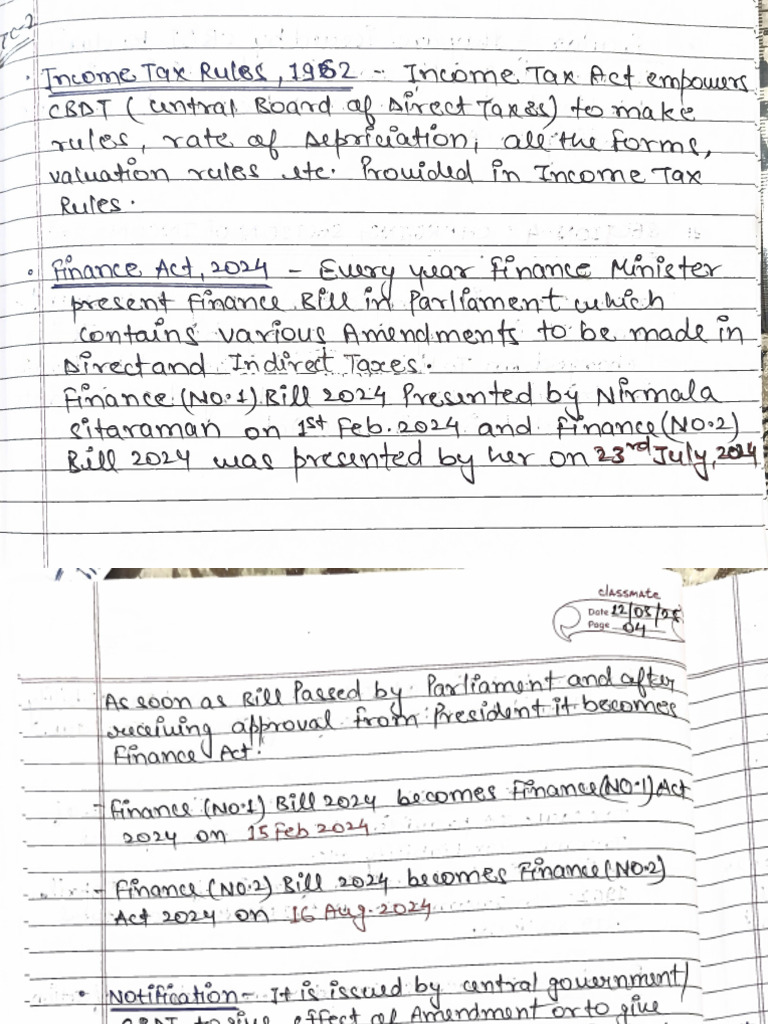 TC-2
• Income Tax Rules, 1962 - Income Tax Act empowers
CBDT (Central Board of Direct Taxes) to make
rules, rate of Depriciation, all the forms,
valuation rules etc. Provided in Income Tax
Rules.
• Finance Act, 2024 - Every year Finance Minister
present Finance Bill in Parliament which
contains various Amendments to be made in
Direct and Indirect Taxes.
Finance (NO.1) Bill 2024 Presented by Nirmala
Sitaraman on 1st Feb. 2024 and Finance (NO.2)
Bill 2024 was presented by her on 23rd July, 2024
classmate
Date 12/03/25
Page 04
As soon as Bill Passed by Parliament and after
receiving approval from President it becomes
Finance Act.
- Finance (NO.1) Bill 2024 becomes Finance (NO.1) Act
2024 on 15 Feb 2024
- Finance (NO.2) Bill 2024 becomes Finance (NO.2)
Act 2024 on 16 Aug. 2024
• Notification - It is issued by central government/
CBDT to give effect of Amendment or to give